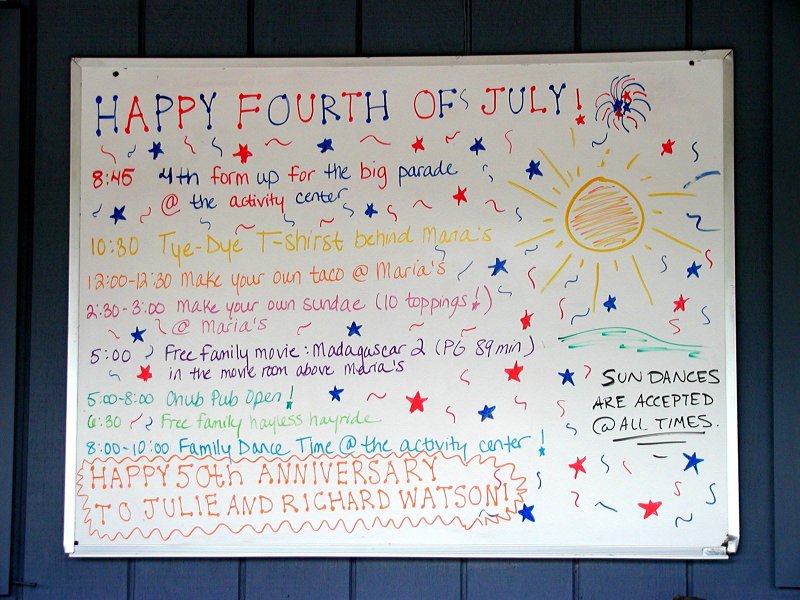 HAPPY FOURTH OF JULY!
8:45 4th form up for the big parade
@ the activity center
10:30 Tye-Dye T-shirst behind Maria's
12:00-12:30 Make your own taco @ Maria's
2:30-3:00 Make your own sundae (10 toppings!)
@ Maria's
5:00 Free family movie: Madagascar 2 (PG 89 min)
in the movie room above Maria's
5:00-8:00 Chub Pub Open!
6:30 Free family hayless hayride
8:00-10:00 Family Dance Time @ the activity center!
HAPPY 50th ANNIVERSARY
TO JULIE AND RICHARD WATSON!
SUN DANCES
ARE ACCEPTED
@ ALL TIMES.